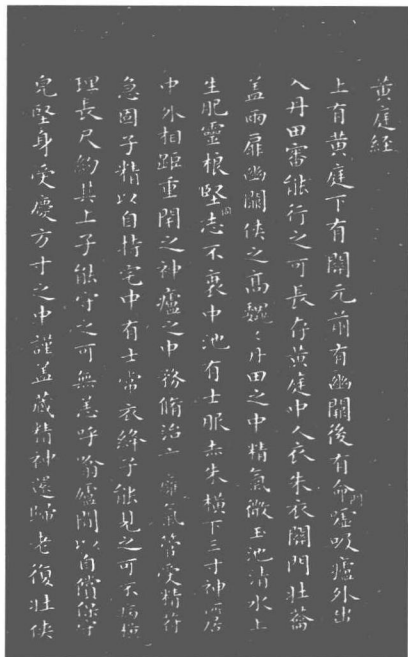 黄庭経
上有黄庭下有關元前有幽闕後有命門噓吸廬外出
入丹田審能行之可長存黄庭中人衣朱衣關門壯蘥
蓋兩扉幽關俠之高魏〻丹田之中精氣微玉池清水上
生肥靈根堅固志不衰中池有士服赤朱横下三寸神所居
中外相距重閇之神廬之中務脩治玄𤸪氣管受精符
急固子精以自持宅中有士常衣絳子能見之可不病橫
理長尺約其上子能守之可無恙呼噏廬間以自償保守
完堅身受慶方寸之中謹蓋藏精神還歸老復壯俠